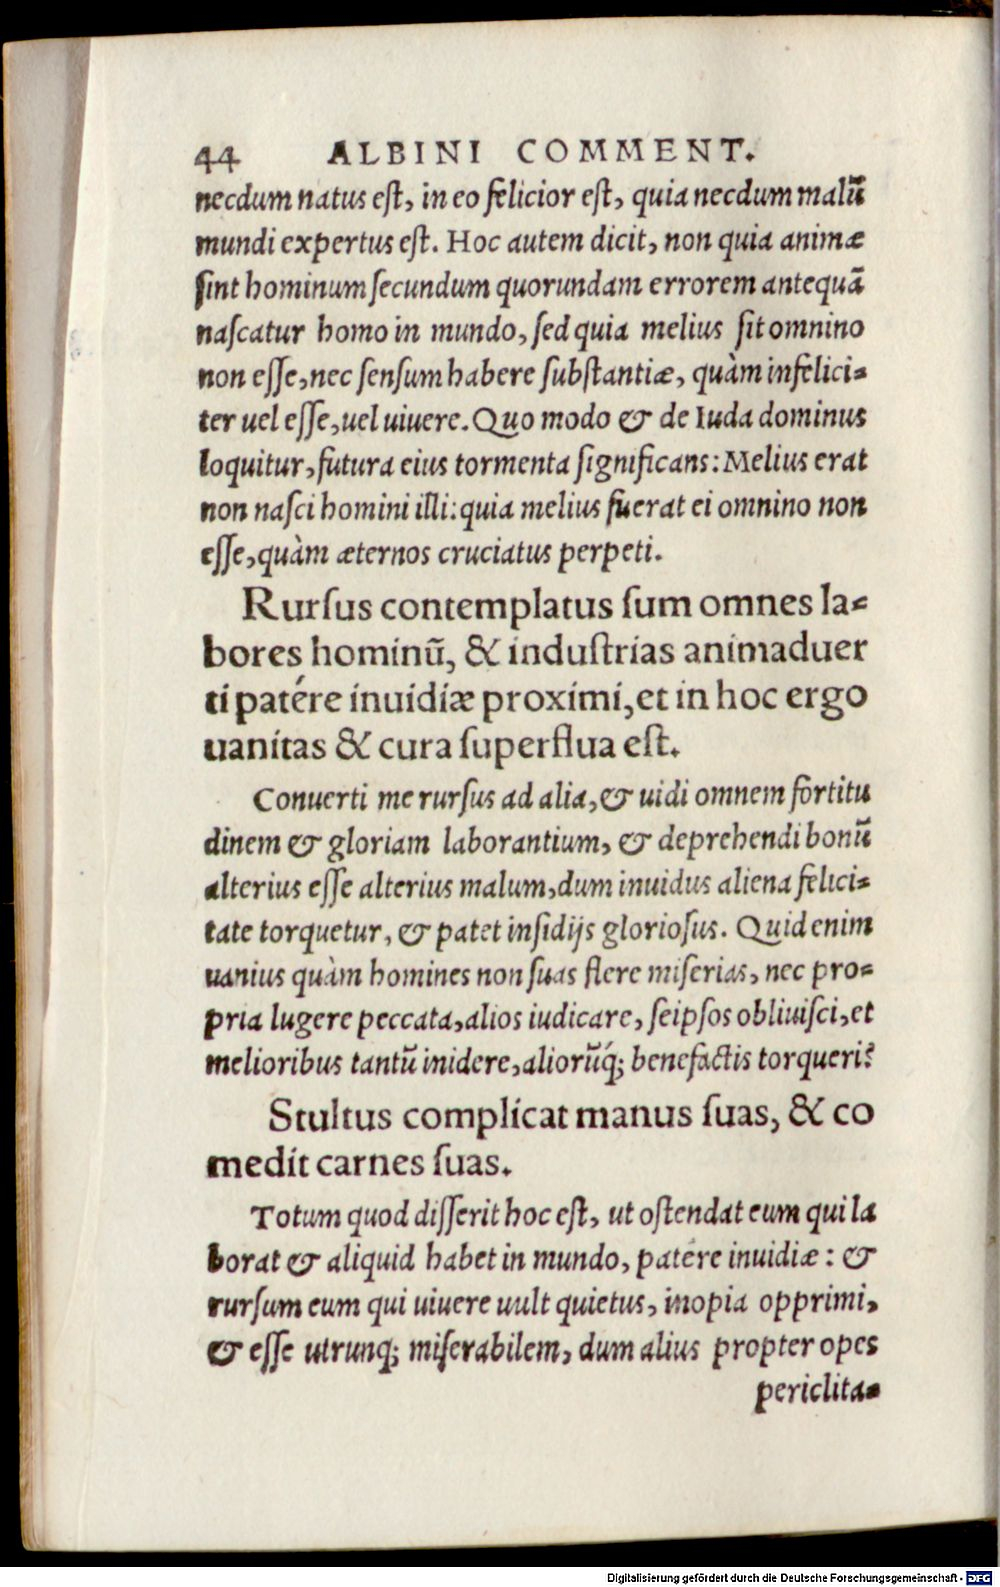 44 ALBINI COMMENT.
necdum natus eſt, in eo felicior eſt, quia necdum malũ
mundi expertus eſt. Hoc autem dicit, non quia animæ
ſint hominum ſecundum quorundam errorem antequã
naſcatur homo in mundo, ſed quia melius ſit omnino
non eſſe, nec ſenſum habere ſubſtantiæ, quàm infelici-
ter uel eſſe, uel uiuere. Quo modo & de Iuda dominus
loquitur, futura eius tormenta ſignificans: Melius erat
non naſci homini illi: quia melius fuerat ei omnino non
eſſe, quàm æternos cruciatus perpeti.
Rurſus contemplatus ſum omnes la-
bores hominũ, & induſtrias animaduer
ti patére inuidiæ proximi, et in hoc ergo
uanitas & cura ſuperflua eſt.
Conuerti me rurſus ad alia, & uidi omnem fortitu
dinem & gloriam laborantium, & deprehendi bonũ
alterius eſſe alterius malum, dum inuidus aliena felici-
tate torquetur, & patet inſidijs glorioſus. Quid enim
uanius quàm homines non ſuas flere miſerias, nec pro-
pria lugere peccata, alios iudicare, ſeipſos obliuiſci, et
melioribus tantũ inidere, aliorũq́; benefactis torqueri?
Stultus complicat manus ſuas, & co
medit carnes ſuas.
Totum quod diſſerit hoc eſt, ut oſtendat eum qui la
borat & aliquid habet in mundo, patére inuidiæ: &
rurſum eum qui uiuere uult quietus, inopia opprimi,
& eſſe utrunq; miſerabilem, dum alius propter opes
periclita-
Digitalisierung gefördert durch die Deutsche Forschungsgemeinschaft - DFG